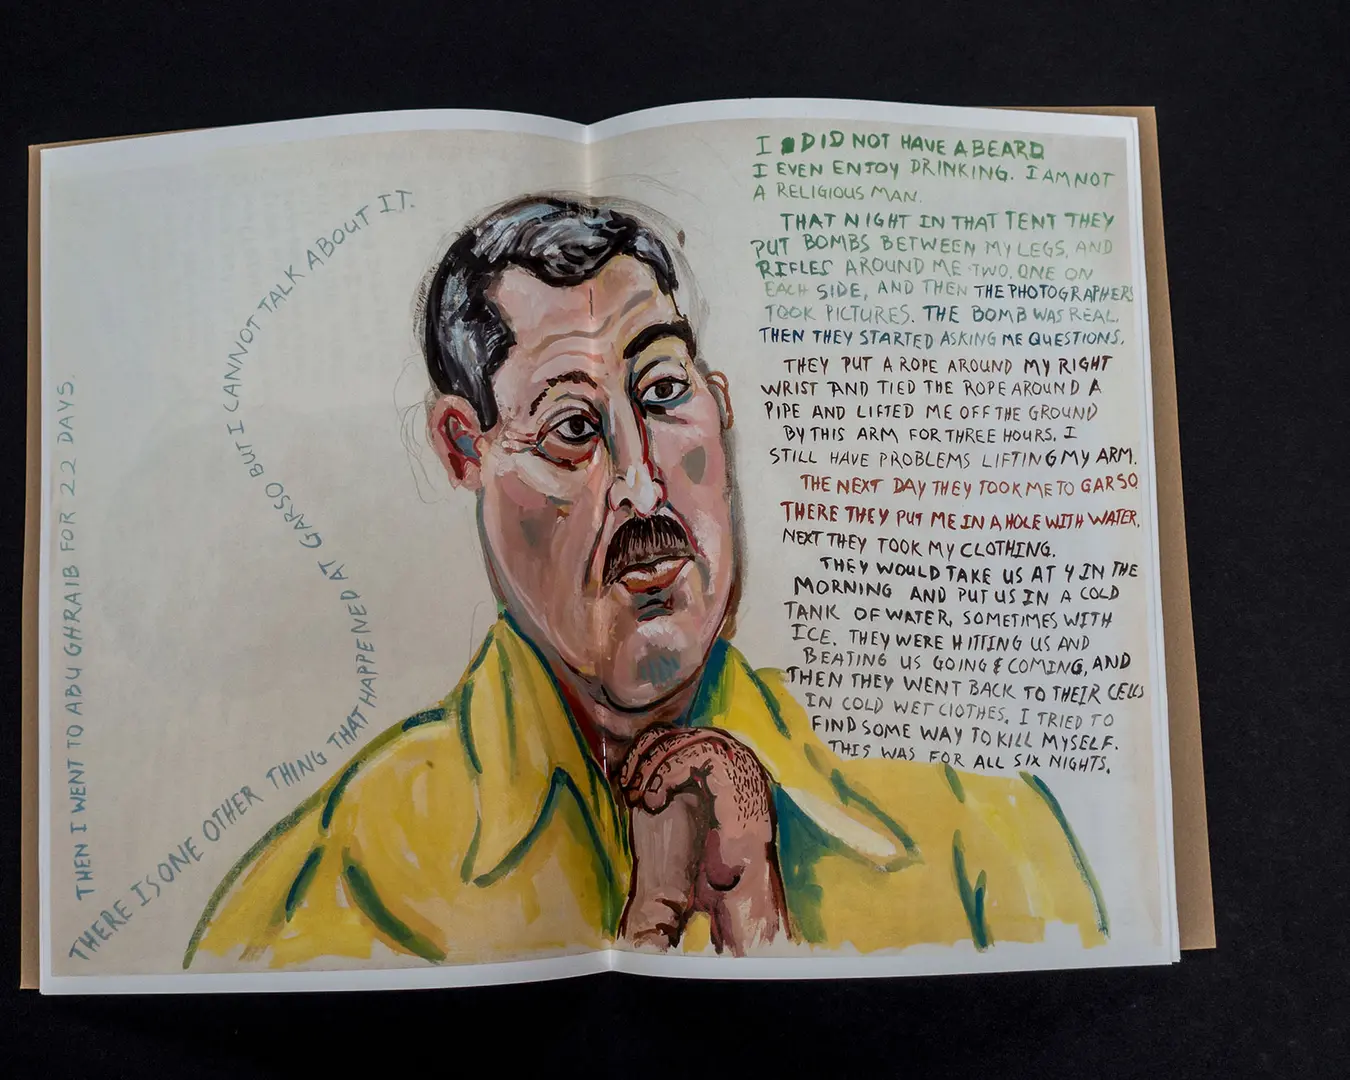 THEN I WENT TO ABU GHRAIB FOR 22 DAYS.
THERE IS ONE OTHER THING THAT HAPPENED AT GARSO BUT I CANNOT TALK ABOUT IT.
I DID NOT HAVE A BEARD
I EVEN ENJOY DRINKING. I AM NOT
A RELIGIOUS MAN.
THAT NIGHT IN THAT TENT THEY
PUT BOMBS BETWEEN MY LEGS, AND
RIFLES AROUND ME TWO. ONE ON
EACH SIDE, AND THEN THE PHOTOGRAPHERS
TOOK PICTURES. THE BOMB WAS REAL.
THEN THEY STARTED ASKING ME QUESTIONS.
THEY PUT A ROPE AROUND MY RIGHT
WRIST AND TIED THE ROPE AROUND A
PIPE AND LIFTED ME OFF THE GROUND
BY THIS ARM FOR THREE HOURS. I
STILL HAVE PROBLEMS LIFTING MY ARM.
THE NEXT DAY THEY TOOK ME TO GARSO
THERE THEY PUT ME IN A HOLE WITH WATER.
NEXT THEY TOOK MY CLOTHING.
THEY WOULD TAKE US AT 4 IN THE
MORNING AND PUT US IN A COLD
TANK OF WATER, SOMETIMES WITH
ICE. THEY WERE HITTING US AND
BEATING US GOING & COMING, AND
THEN THEY WENT BACK TO THEIR CELLS
IN COLD WET CLOTHES. I TRIED TO
FIND SOME WAY TO KILL MYSELF.
THIS WAS FOR ALL SIX NIGHTS.